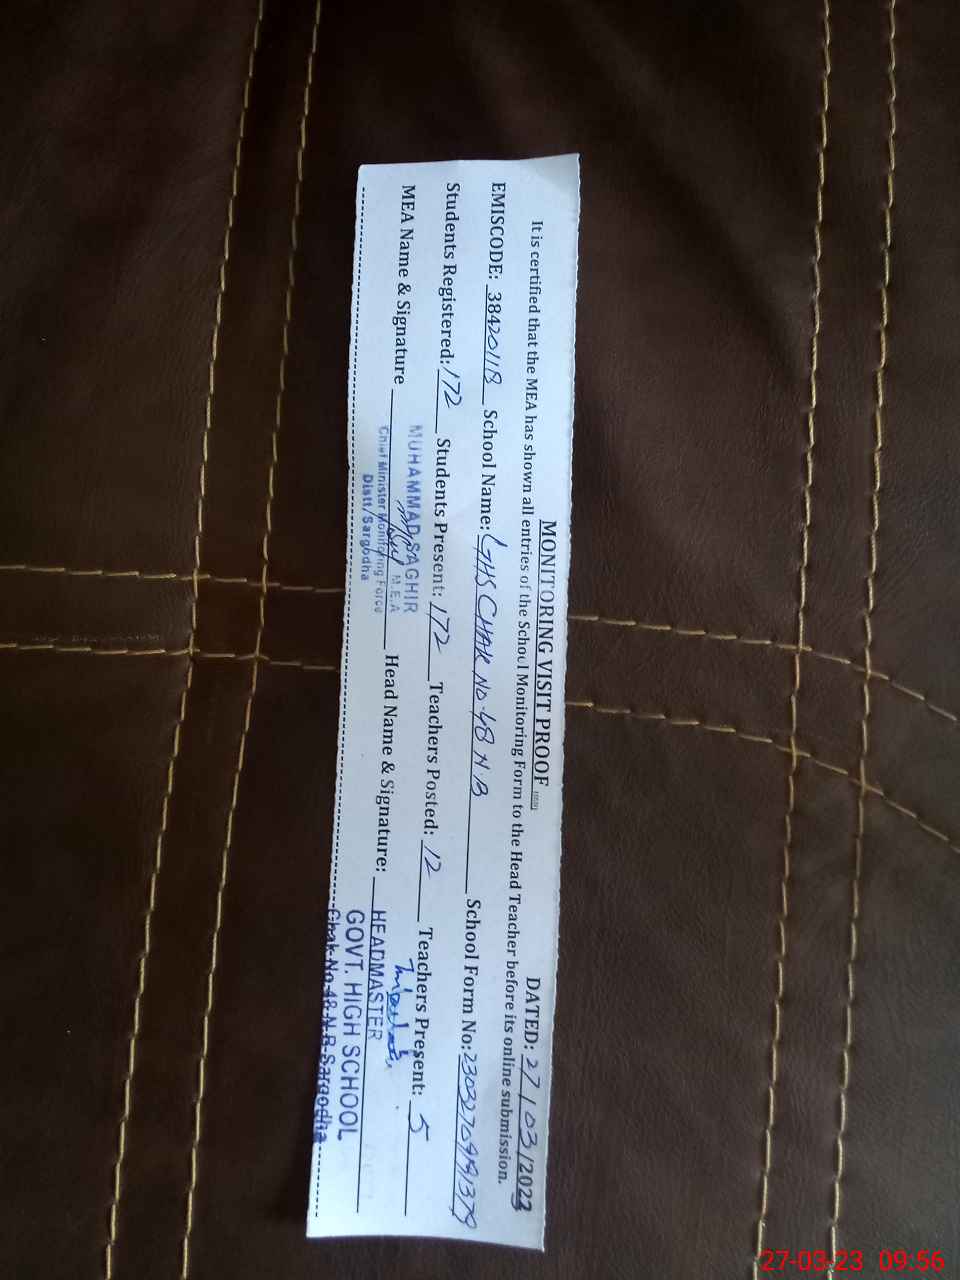 MONITORING VISIT PROOF
DATED: 27/03/2023
It is certified that the MEA has shown all entries of the School Monitoring Form to the Head Teacher before its online submission.
EMISCODE: 38420118 School Name: GHS CHAK No. 48 N.B School Form No:
Students Registered: 172 Students Present: 172 Teachers Posted: 12 Teachers Present: 5
MEA Name & Signature MUHAMMAD SAGHIR Head Name & Signature:
M.E.A
Chief Minister Monitoring Force
Distt/Sargodha
HEADMASTER
GOVT. HIGH SCHOOL
Chak No.48-N.B-Sargodha
27-03-23 09:56